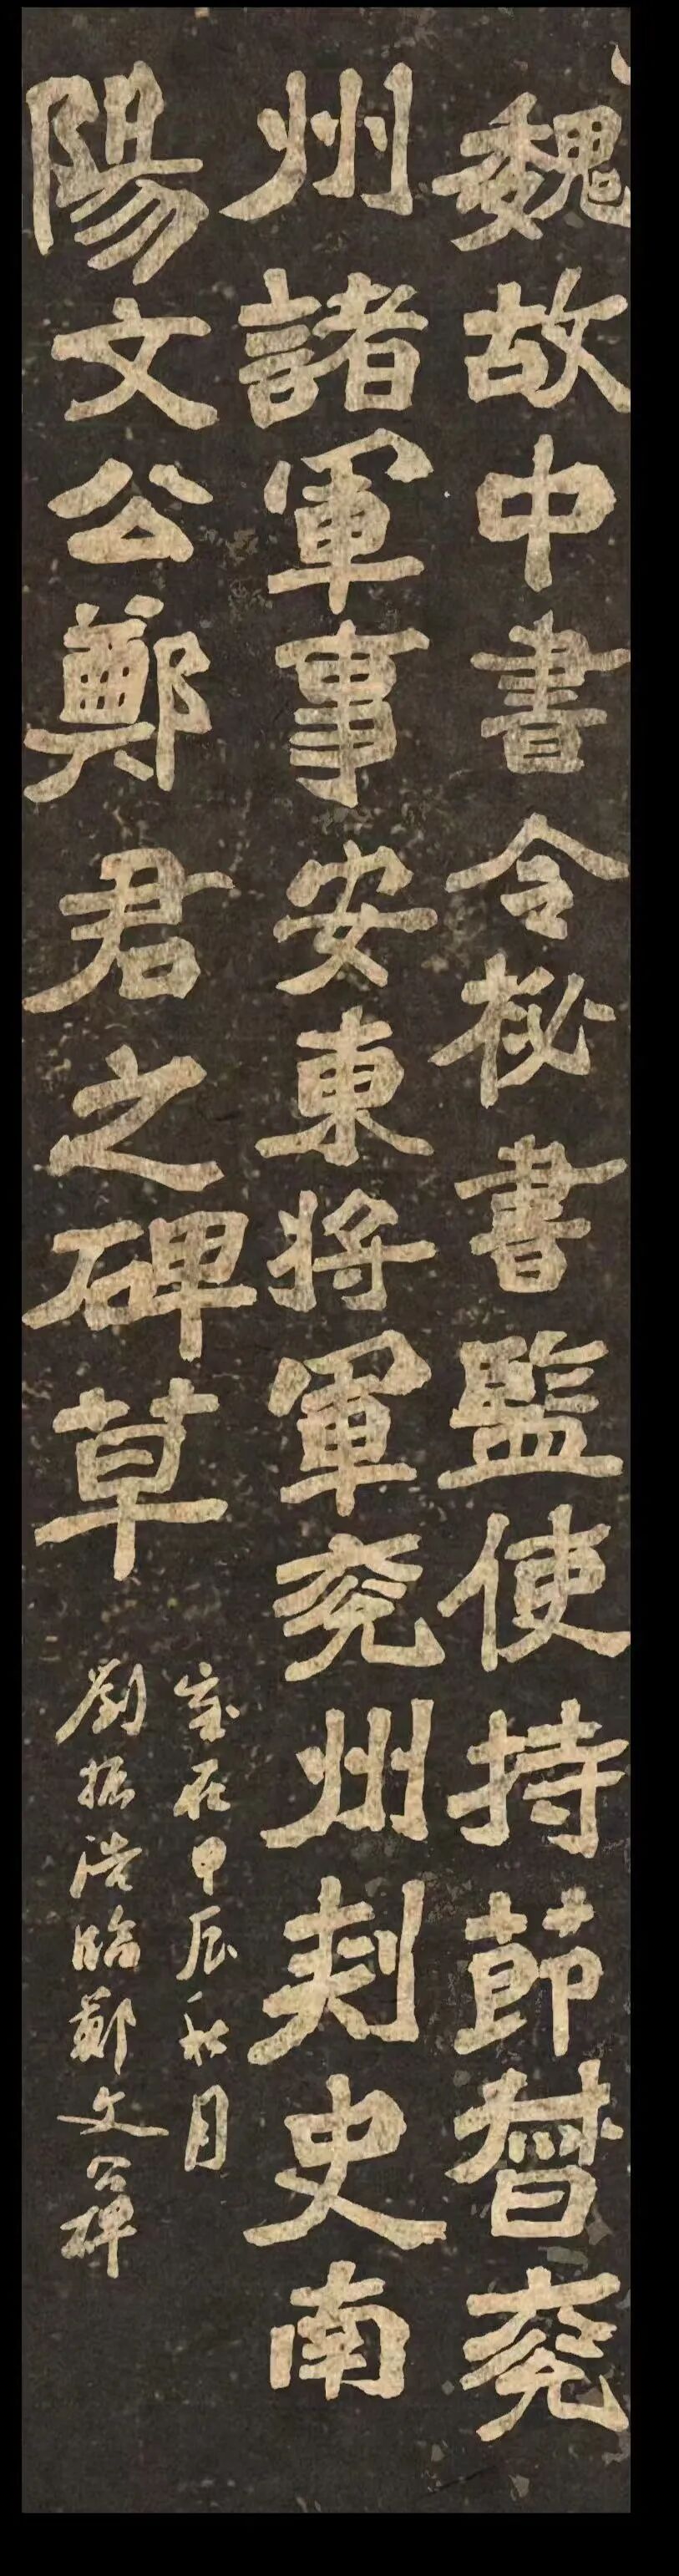 魏故中書令秘書監使持節督兗
州諸軍事安東將軍兗州刾史南
陽文公鄭君之碑草
歲在甲辰秋月
劉振浩臨鄭文公碑